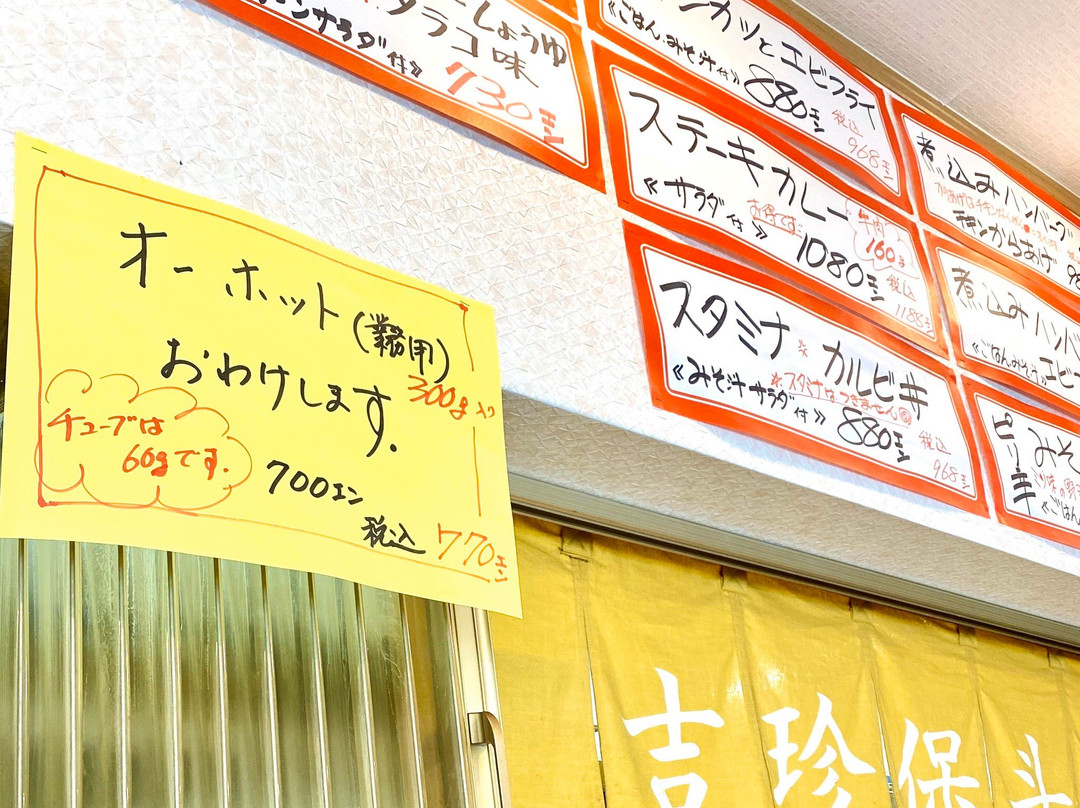 オーホット(業務用)
おわけします。
300g入り
チューブは
60gです。
700エン
税込 770エン
しょうゆ
タラコ味
サラダ付》
730エン
カツとエビフライ
《ごはん、みそ汁付》
880エン
税込
968エン
ステーキカレー
《サラダ付》
お得です
牛肉
160g
1080エン
税込
1188エン
スタミナ※カルビ丼
※スタミナはつきません
《みそ汁サラダ付》
880エン
税込
968エン
煮込みハンバーグ
チキンからあげ
煮込みハンバ
エビ
《ごはん、みそ汁
ピリ
みそ
丼
《ごはん
吉珍保